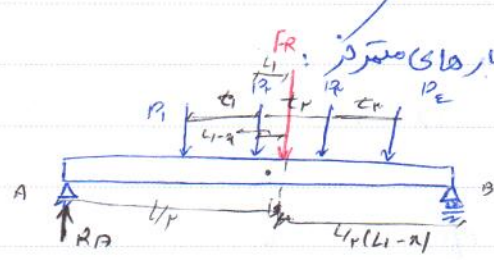 بارهای متمرکز :
R
L₁
P₁ P₂ P₃ P₄
t₁ t₂ t₃
L₁-x
A B
R_A
L/۲ L/۲-(L₁-x)